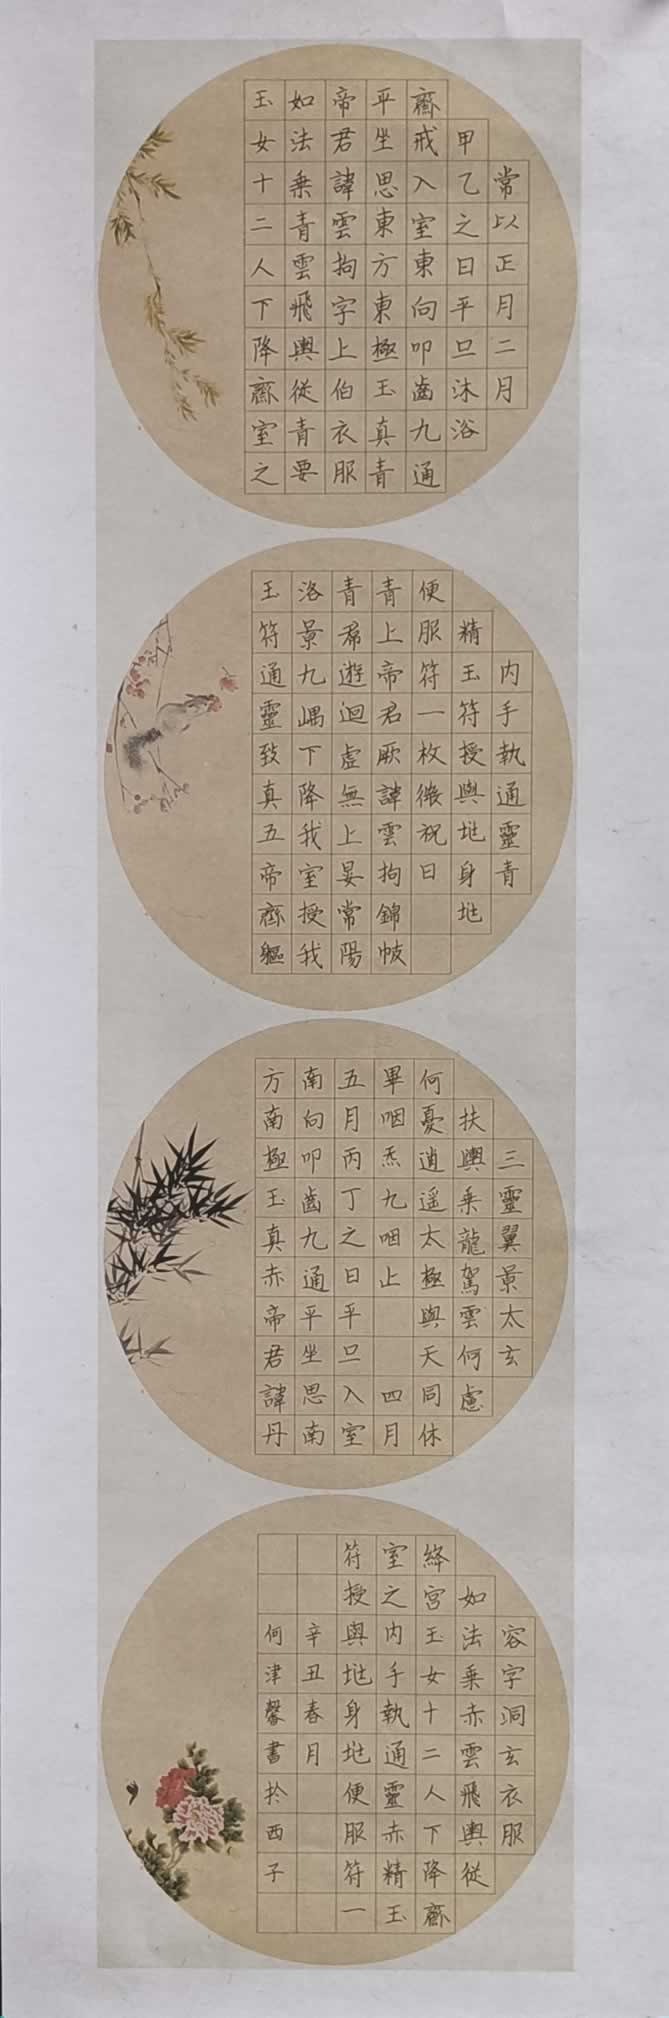 常以正月二月
甲乙之日平旦沐浴
齋戒入室東向叩齒九通
平坐思東方東極玉真青
帝君諱雲拘字上伯衣服
如法乗青雲飛輿從青要
玉女十二人下降齋室之
内手執通靈青
精玉符授與地身地
便服符一枚微祝曰
青上帝君厥諱雲拘錦帔
青帬遊迴虛無上晏常陽
洛景九嵎下降我室授我
玉符通靈致真五帝齊軀
三靈翼景太玄
扶輿乗龍駕雲何慮
何憂逍遥太極與天同休
畢咽炁九咽止 四月
五月丙丁之日平旦入室
南向叩齒九通平坐思南
方南極玉真赤帝君諱丹
容字洞玄衣服
如法乗赤雲飛輿從
絳宮玉女十二人下降齋
室之内手執通靈赤精玉
符授與地身地便服符一
辛丑春月
何津馨書於西子